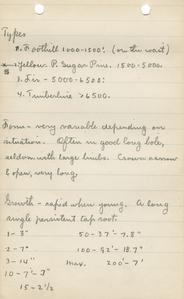 Types
2. Foothill 1000-1500'. (on the west)
Yellow P. Sugar Pine. 1500-5000.
3. Fir - 5000-6500'.
4. Timberline > 6500.
Form - very variable depending on
situation. Often in good long bole,
seldom with large limbs. Crown narrow
& open, very long.
Growth - rapid when young. A long
single persistent tap root.
1 - 3" 50 - 37' - 7.8"
2 - 7" 100 - 92' - 18.7"
3 - 14" max. 200' - 7'
10 - 7' - 
15 - 2 1/2